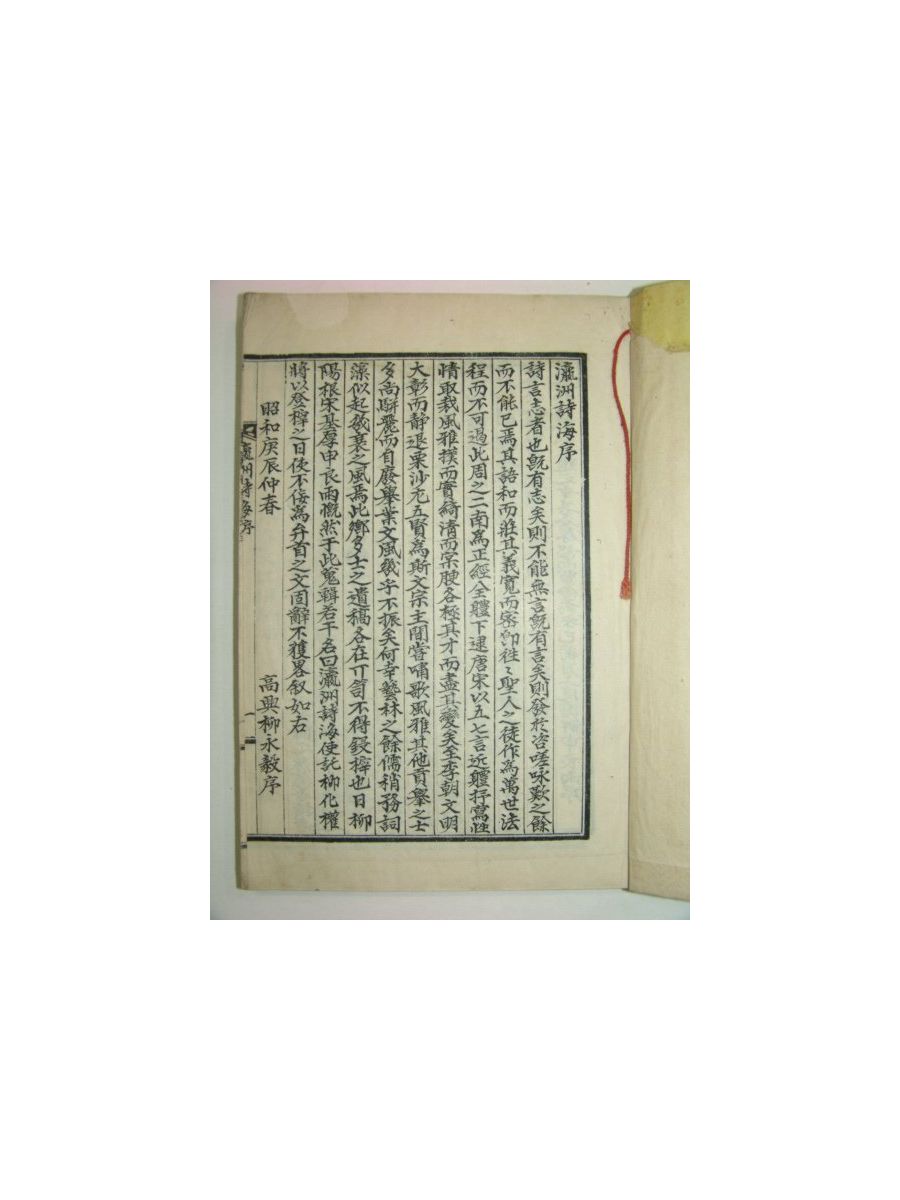 瀛洲詩海序
詩言志者也旣有志矣則不能無言旣有言矣則發於咨嗟咏歎之餘
而不能已焉其語和而莊其義寬而密卽徃〻聖人之徒作爲萬世法
程而不可過此周之二南爲正經全軆下逮唐宋以五七言近軆抒寫性
情取裁風雅撲而實綺清而宗腴各極其才而盡其變矣至李朝文明
大彰而静退栗沙尤五賢爲斯文宗主間嘗嘯歌風雅其他貢擧之士
多尙騈麗而自廢擧業文風幾乎不振矣何幸藝林之餘儒稍務詞
藻似起幾衰之風焉此鄕多士之遺稿各在丌笥不得鋟榟也日柳
陽根宋基厚申良雨慨然于此蒐輯若干名曰瀛洲詩海使託柳化權
將以登榟之日使不侫爲弁首之文固辭不獲畧叙如右
昭和庚辰仲春 高興柳永毅序
瀛州詩海序 一